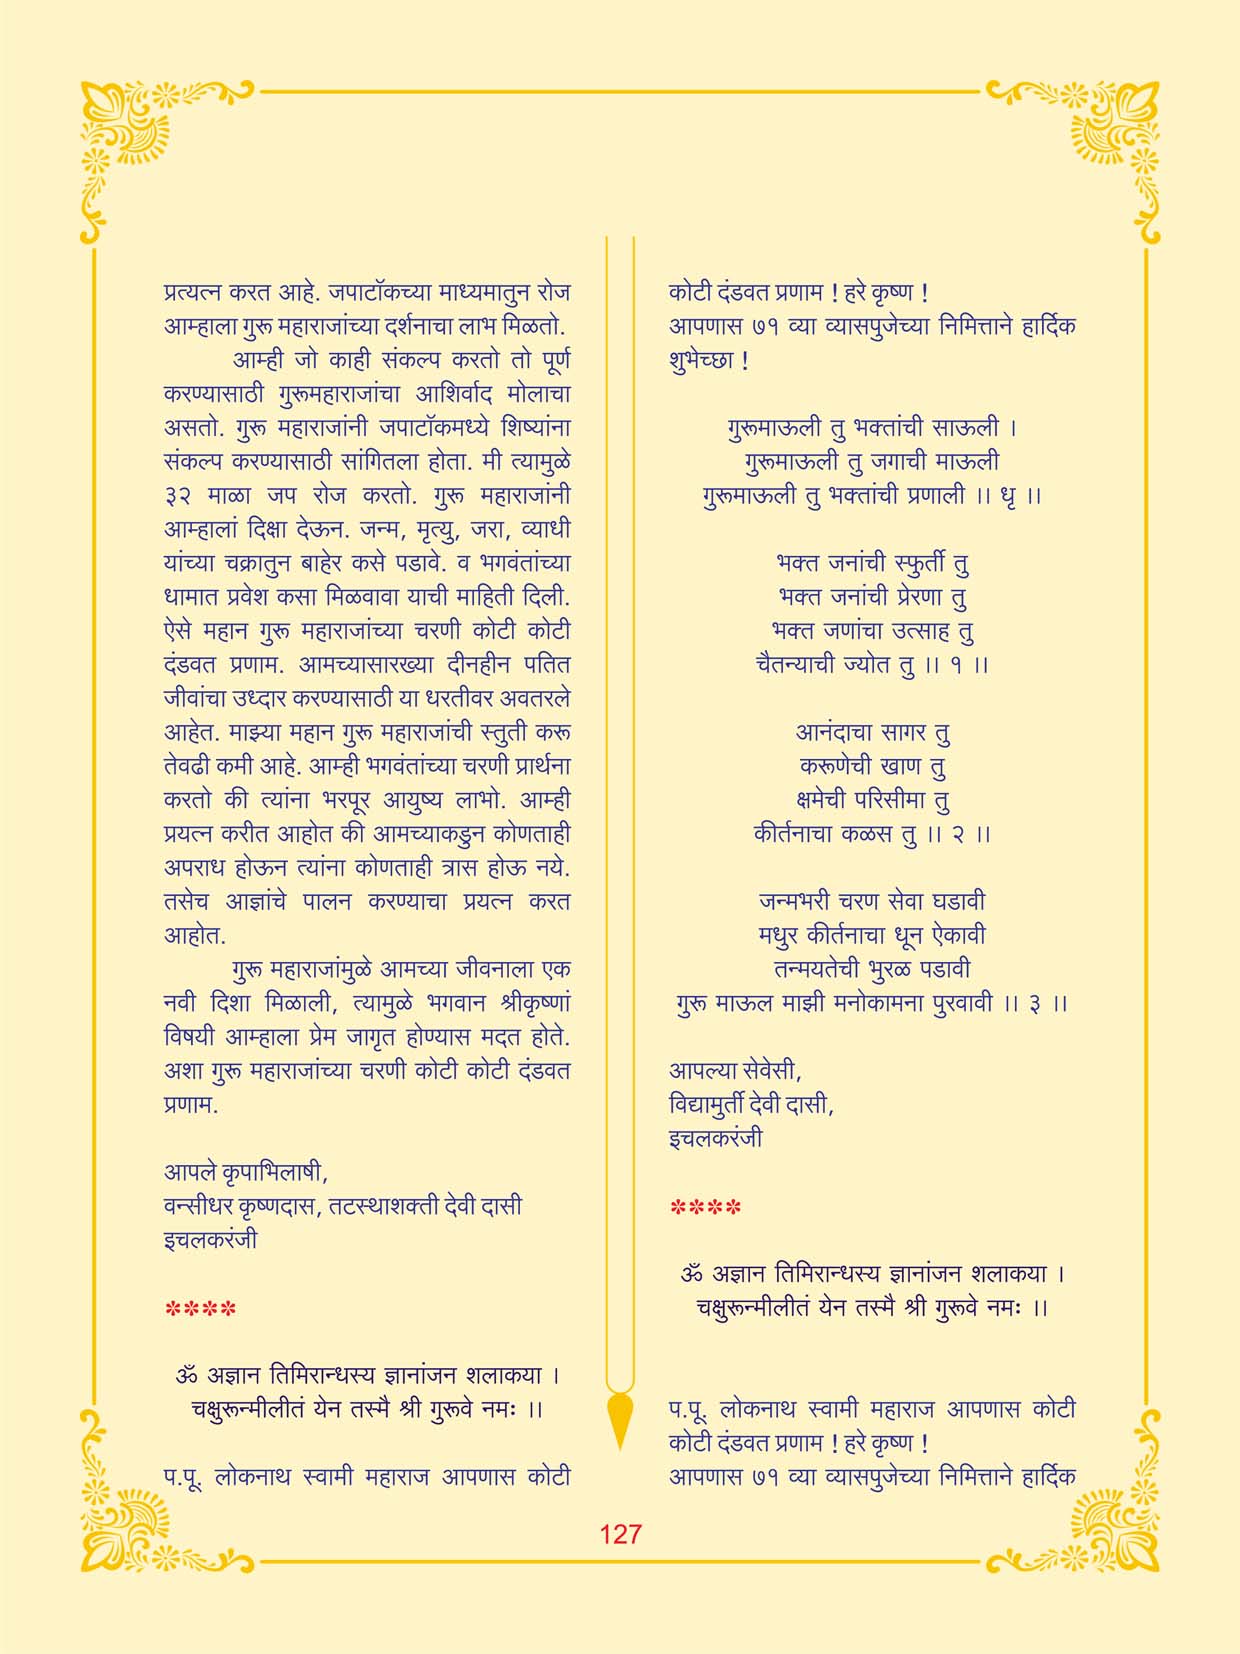 प्रत्यत्न करत आहे. जपाटॉकच्या माध्यमातुन रोज
आम्हाला गुरू महाराजांच्या दर्शनाचा लाभ मिळतो.
आम्ही जो काही संकल्प करतो तो पूर्ण
करण्यासाठी गुरूमहाराजांचा आशिर्वाद मोलाचा
असतो. गुरू महाराजांनी जपाटॉकमध्ये शिष्यांना
संकल्प करण्यासाठी सांगितला होता. मी त्यामुळे
३२ माळा जप रोज करतो. गुरू महाराजांनी
आम्हालां दिक्षा देऊन. जन्म, मृत्यु, जरा, व्याधी
यांच्या चक्रातुन बाहेर कसे पडावे. व भगवंतांच्या
धामात प्रवेश कसा मिळवावा याची माहिती दिली.
ऐसे महान गुरू महाराजांच्या चरणी कोटी कोटी
दंडवत प्रणाम. आमच्यासारख्या दीनहीन पतित
जीवांचा उध्दार करण्यासाठी या धरतीवर अवतरले
आहेत. माझ्या महान गुरू महाराजांची स्तुती करू
तेवढी कमी आहे. आम्ही भगवंतांच्या चरणी प्रार्थना
करतो की त्यांना भरपूर आयुष्य लाभो. आम्ही
प्रयत्न करीत आहोत की आमच्याकडुन कोणताही
अपराध होऊन त्यांना कोणताही त्रास होऊ नये.
तसेच आज्ञांचे पालन करण्याचा प्रयत्न करत
आहोत.
गुरू महाराजांमुळे आमच्या जीवनाला एक
नवी दिशा मिळाली, त्यामुळे भगवान श्रीकृष्णां
विषयी आम्हाला प्रेम जागृत होण्यास मदत होते.
अशा गुरू महाराजांच्या चरणी कोटी कोटी दंडवत
प्रणाम.
आपले कृपाभिलाषी,
वन्सीधर कृष्णदास, तटस्थाशक्ती देवी दासी
इचलकरंजी
****
ॐ अज्ञान तिमिरान्धस्य ज्ञानांजन शलाकया ।
चक्षुरून्मीलीतं येन तस्मै श्री गुरूवे नमः ।।
प.पू. लोकनाथ स्वामी महाराज आपणास कोटी
कोटी दंडवत प्रणाम ! हरे कृष्ण !
आपणास ७१ व्या व्यासपुजेच्या निमित्ताने हार्दिक
शुभेच्छा !
गुरूमाऊली तु भक्तांची साऊली ।
गुरूमाऊली तु जगाची माऊली
गुरूमाऊली तु भक्तांची प्रणाली ।। धृ ।।
भक्त जनांची स्फुर्ती तु
भक्त जनांची प्रेरणा तु
भक्त जणांचा उत्साह तु
चैतन्याची ज्योत तु ।। १ ।।
आनंदाचा सागर तु
करूणेची खाण तु
क्षमेची परिसीमा तु
कीर्तनाचा कळस तु ।। २ ।।
जन्मभरी चरण सेवा घडावी
मधुर कीर्तनाचा धून ऐकावी
तन्मयतेची भुरळ पडावी
गुरू माऊल माझी मनोकामना पुरवावी ।। ३ ।।
आपल्या सेवेसी,
विद्यामुर्ती देवी दासी,
इचलकरंजी
****
ॐ अज्ञान तिमिरान्धस्य ज्ञानांजन शलाकया ।
चक्षुरून्मीलीतं येन तस्मै श्री गुरूवे नमः ।।
प.पू. लोकनाथ स्वामी महाराज आपणास कोटी
कोटी दंडवत प्रणाम ! हरे कृष्ण !
आपणास ७१ व्या व्यासपुजेच्या निमित्ताने हार्दिक
127